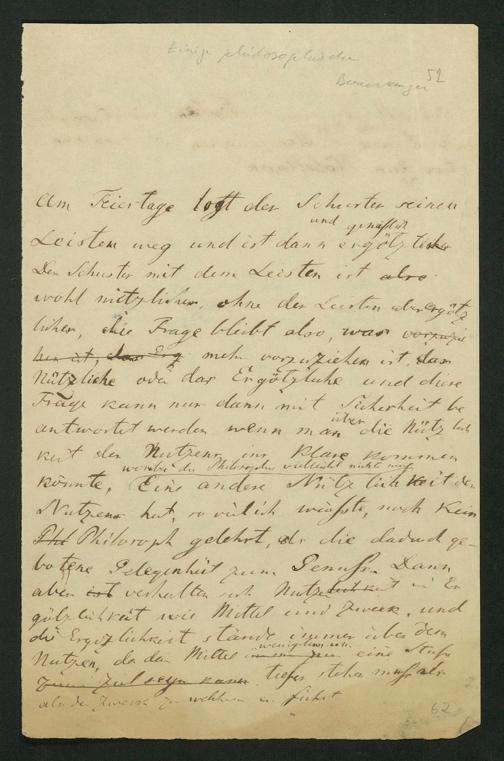 Einige philosophische
Bemerkungen 52
Am Feiertage legt der Schuster seinen
und
Leisten weg und ist dann ergötzlicher
Der Schuster mit dem Leisten ist also
wohl nützlicher, ohne den Leisten aber ergötz
licher, die Frage bleibt also, was vorzuzie
hen ist, das Erg mehr vorzuziehen ist, das
Nützliche oder das Ergötzliche und diese
Frage kann nur dann mit Sicherheit be
antwortet werden wenn man über die Nütz lich
keit des Nutzens ins Klare kommen
könnte, Eine andere Nützlichkeit des
Nutzens hat, so viel ich wüsste, noch kein
Phi Philosoph gelehrt, als die dadurch ge-
botene Gelegenheit zum Genuss. Dann
aber verhalten sich Nutzlichkeit und Er
götzlichkeit wie Mittel und Zweck, und
die Ergötzlichkeit stände immer über dem
Nutzen, da das Mittel eine Stufe
tiefer stehen muss als
als der Zweck zu welchem er führt
62